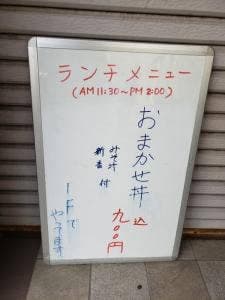 ランチメニュー
(AM 11:30～PM 2:00)
おまかせ丼
込
九〇〇円
みそ汁
新香
付
1Fで
やってます